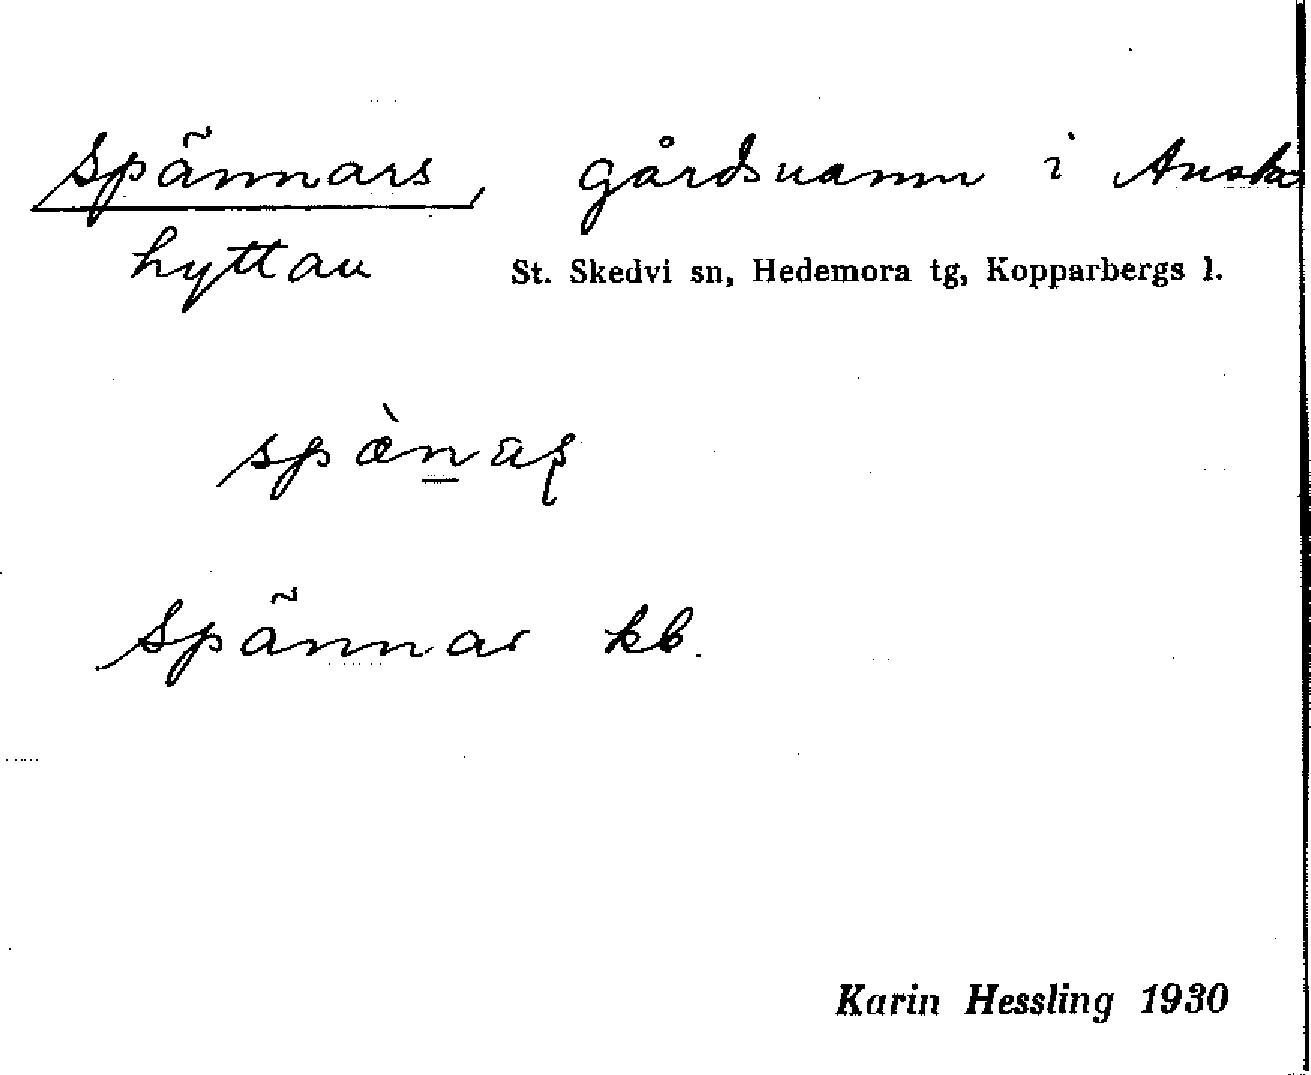 Spännars, gårdsnamn i Anska
hyttan St. Skedvi sn, Hedemora tg, Kopparbergs l.
spæ̀n̲as̩
Spännar kb.
Karin Hessling 1930